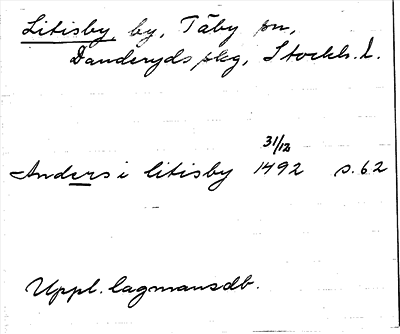 Litisby by, Täby sn,
Danderyds skg, Stockh. l.
31/12
Anders i litisby 1492 s. 62
Uppl. lagmansdb.